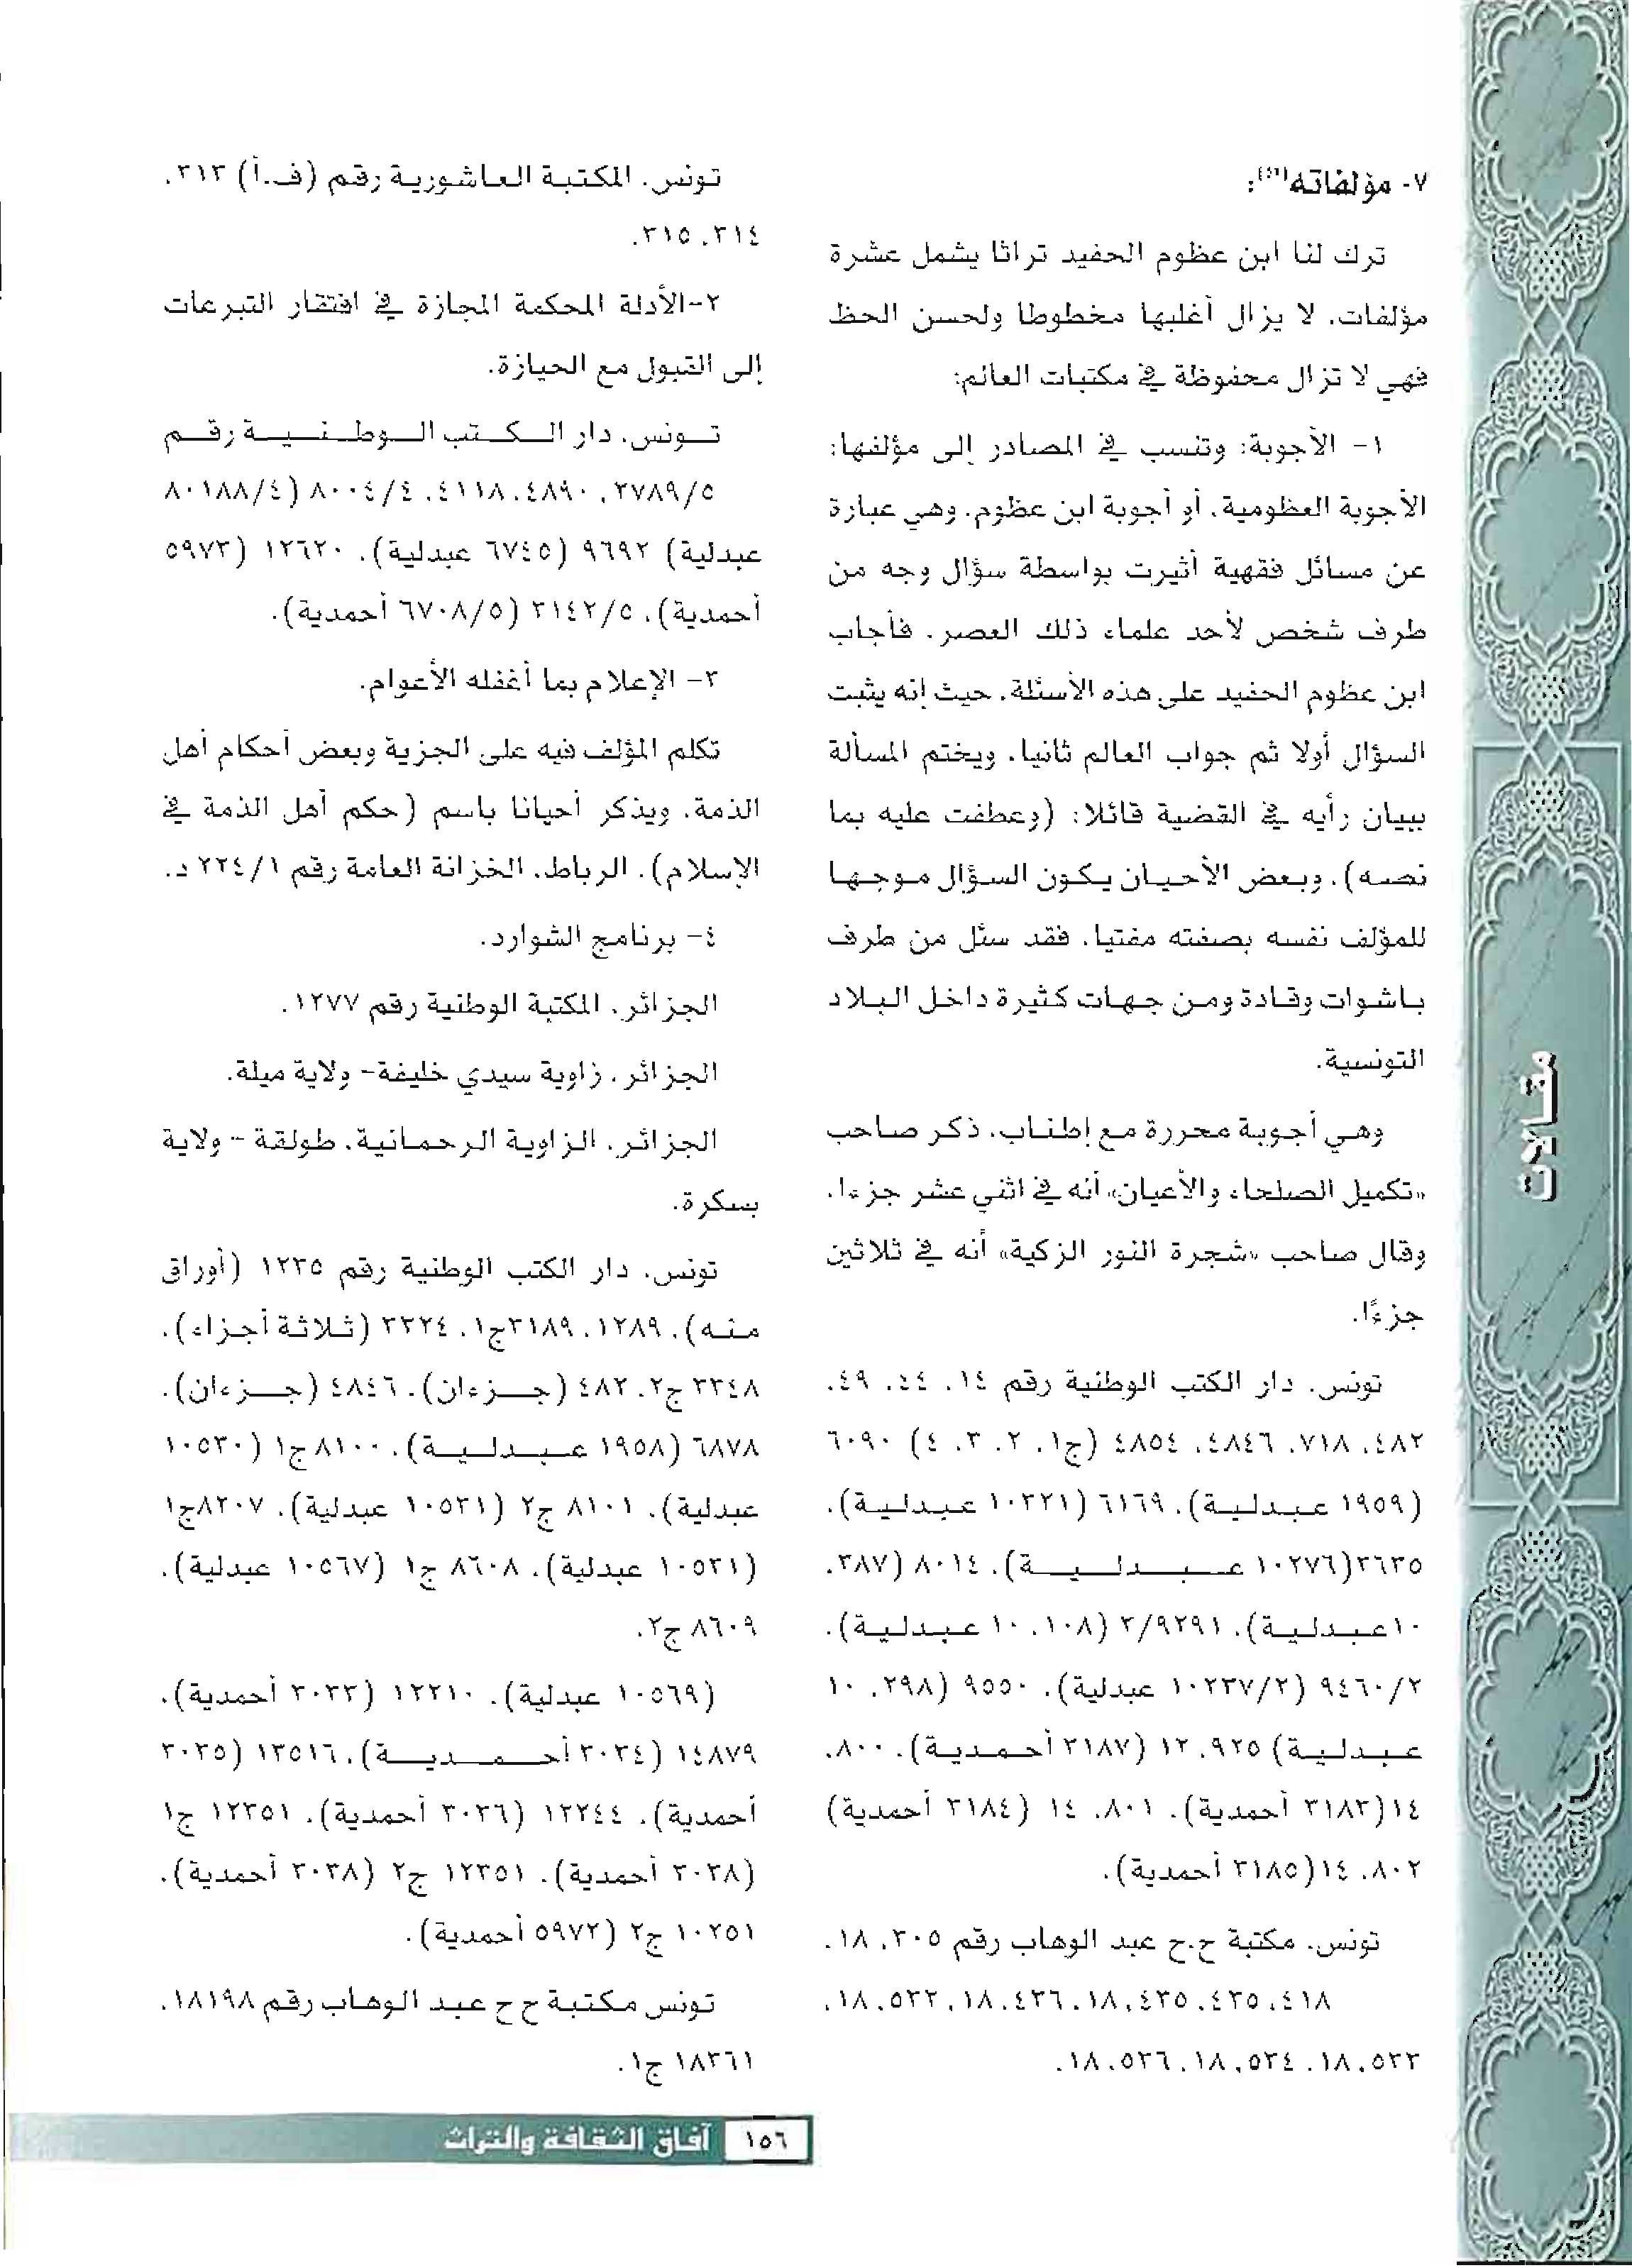 ٧- مؤلفاته(٤١):
ترك لنا ابن عظوم الحفيد تراثا يشمل عشرة
مؤلفات، لا يزال أغلبها مخطوطا ولحسن الحظ
فهي لا تزال محفوظة في مكتبات العالم:
١- الأجوبة: وتنسب في المصادر إلى مؤلفها:
الأجوبة العظومية، أو أجوبة ابن عظوم. وهي عبارة
عن مسائل فقهية أثيرت بواسطة سؤال وجه من
طرف شخص لأحد علماء ذلك العصر. فأجاب
ابن عظوم الحفيد على هذه الأسئلة. حيث إنه يثبت
السؤال أولا ثم جواب العالم ثانيا، ويختم المسألة
ببيان رأيه في القضية قائلا: (وعطفت عليه بما
نصه). وبعض الأحيان يكون السؤال موجها
للمؤلف نفسه بصفته مفتيا، فقد سئل من طرف
باشوات وقادة ومن جهات كثيرة داخل البلاد
التونسية.
وهي أجوبة محررة مع إطناب، ذكر صاحب
«تكميل الصلحاء والأعيان» أنه في اثني عشر جزءا،
وقال صاحب «شجرة النور الزكية» أنه في ثلاثين
جزءًا.
تونس. دار الكتب الوطنية رقم ١٤، ٤٤، ٤٩،
٤٨٢، ٧١٨، ٤٨٤٦، ٤٨٥٤ (ج١، ٢، ٣، ٤) ٦٠٩٠
(١٩٥٩ عبدلية)، ٦١٦٩ (١٠٣٢١ عبدلية)،
٣٦٣٥(١٠٢٧٦ عبدلية)، ٨٠١٤ (٣٨٧،
١٠عبدلية)، ٣/٩٢٩١ (١٠٨، ١٠ عبدلية)،
٩٤٦٠/٢ (١٠٢٣٧/٢ عبدلية)، ٩٥٥٠ (٢٩٨، ١٠
عبدلية) ٩٢٥، ١٢ (٣١٨٧ أحمدية)، ٨٠٠،
١٤(٣١٨٣ أحمدية)، ٨٠١، ١٤ (٣١٨٤ أحمدية)
٨٠٢، ١٤(٣١٨٥ أحمدية).
تونس. مكتبة ح.ح عبد الوهاب رقم ٣٠٥، ١٨،
٤١٨، ٤٣٥، ١٨،٤٣٥، ١٨،٤٣٦، ١٨،٥٢٢،
١٨،٥٢٣، ١٨،٥٢٤، ١٨،٥٢٦.
تونس. المكتبة العاشورية رقم (ف.أ) ٣١٣،
٣١٤، ٣١٥.
٢-الأدلة المحكمة المجازة في افتقار التبرعات
إلى القبول مع الحيازة.
تونس، دار الكتب الوطنية رقم
٢٧٨٩/٥، ٤٨٩٠، ٤١١٨، ٨٠٠٤/٤ (٨٠١٨٨/٤
عبدلية) ٩٦٩٢ (٦٧٤٥ عبدلية)، ١٢٦٢٠ (٥٩٧٣
أحمدية)، ٣١٤٢/٥ (٦٧٠٨/٥ أحمدية).
٣- الإعلام بما أغفله الأعوام.
تكلم المؤلف فيه على الجزية وبعض أحكام أهل
الذمة، ويذكر أحيانا باسم (حكم أهل الذمة في
الإسلام). الرباط. الخزانة العامة رقم ٢٢٤/١ د.
٤- برنامج الشوارد.
الجزائر. المكتبة الوطنية رقم ١٢٧٧.
الجزائر. زاوية سيدي خليفة- ولاية ميلة.
الجزائر. الزاوية الرحمانية. طولقة - ولاية
بسكرة.
تونس. دار الكتب الوطنية رقم ١٢٣٥ (أوراق
منه)، ١٢٨٩، ٣١٨٩ج١، ٣٢٢٤ (ثلاثة أجزاء)،
٣٣٤٨ ج٢، ٤٨٢ (جزءان)، ٤٨٤٦ (جزءان)،
٦٨٧٨ (١٩٥٨ عبدلية)، ٨١٠٠ ج١ (١٠٥٣٠
عبدلية)، ٨١٠١ ج٢ (١٠٥٣١ عبدلية)، ٨٢٠٧ج١
(١٠٥٣١ عبدلية)، ٨٦٠٨ ج١ (١٠٥٦٧ عبدلية)،
٨٦٠٩ ج٢.
(١٠٥٦٩ عبدلية)، ١٢٢١٠ (٣٠٣٣ أحمدية)،
١٤٨٧٩ (٣٠٣٤ أحمدية)، ١٣٥١٦ (٣٠٣٥
أحمدية)، ١٢٢٤٤ (٣٠٣٦ أحمدية)، ١٢٣٥١ ج١
(٣٠٣٨ أحمدية)، ١٢٣٥١ ج٢ (٣٠٣٨ أحمدية)،
١٠٢٥١ ج٢ (٥٩٧٢ أحمدية).
تونس مكتبة ح ح عبد الوهاب رقم ١٨١٩٨،
١٨٣٦١ ج١.
مقالات
١٥٦ آفاق الثقافة والتراث